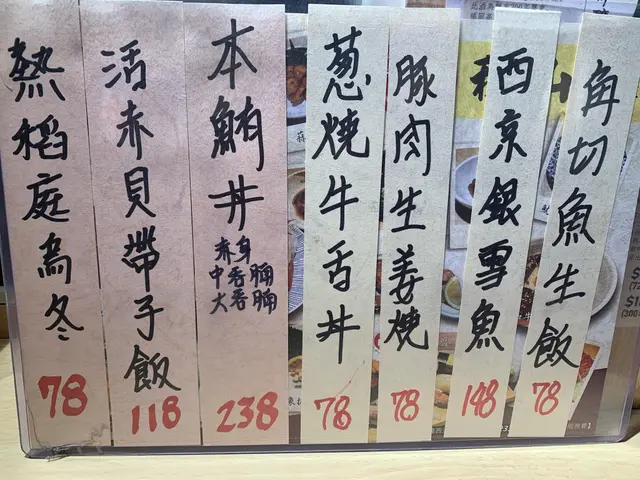 角切魚生飯
78
西京銀雪魚
148
豚肉生姜燒
78
葱燒牛舌丼
78
本鮪丼
赤身
中吞腩
大吞腩
238
活赤貝帶子飯
118
熱稻庭烏冬
78